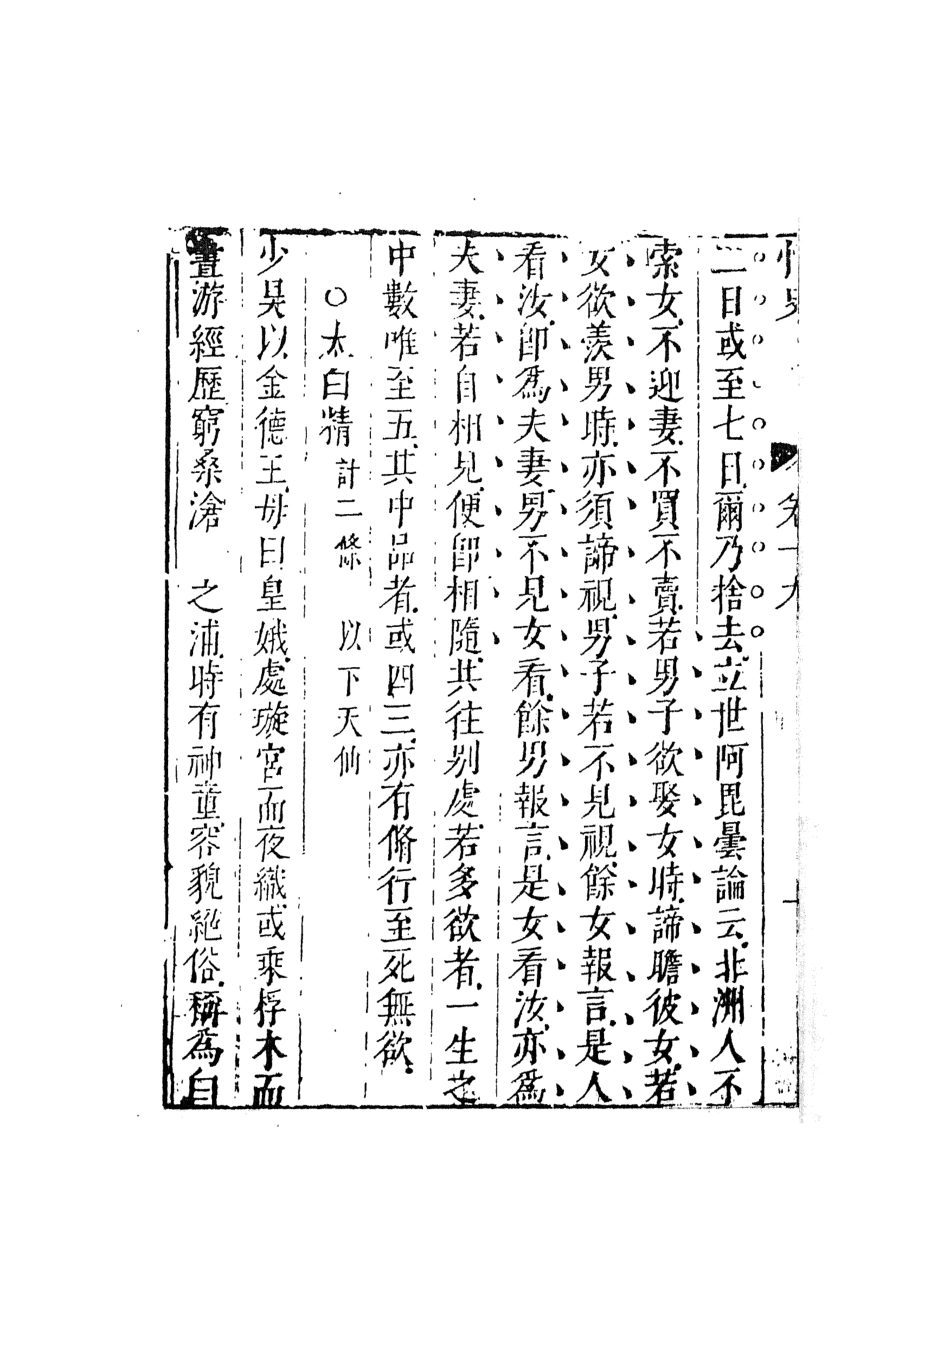 情史 卷十九 一
二日或至七日爾乃捨去立世阿毘曇論云非洲人不
索女不迎妻不買不賣若男子欲娶女時諦瞻彼女若
女欲羨男時亦須諦視男子若不見視餘女報言是人
看汝卽爲夫妻男不見女看餘男報言是女看汝亦爲
夫妻若自相見便卽相隨共往別處若多欲者一生之
中數唯至五其中品者或四三亦有脩行至死無欲
○太白精 計二條 以下天仙
少昊以金德王母曰皇娥處璇宮而夜織或乘桴木而
晝游經歷窮桑滄 之浦時有神童容貌絕俗稱爲白